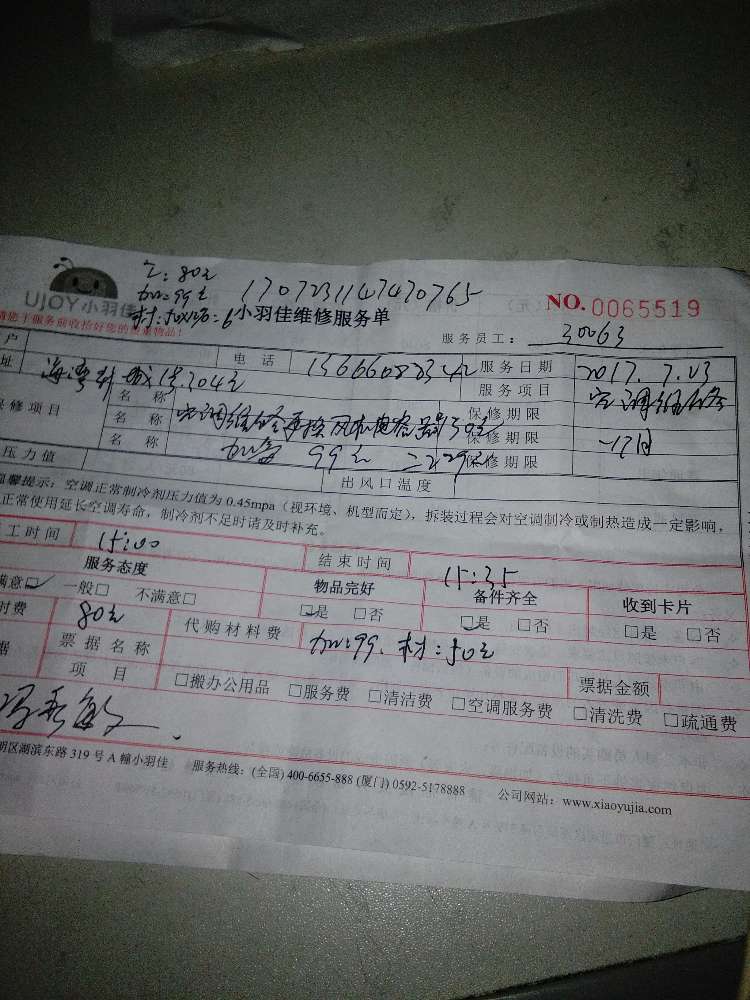 工:80元
加:99元
1707231147470765
UJOY小羽佳
小羽佳维修服务单
NO. 0065519
请您于服务前收拾好您的贵重物品!
服务员工: 30063
户 电话 服务日期 2017.7.23
址 304 服务项目 空调维修
保修项目 名称 空调维修更换风机电容器 50元 保修期限
名称 加氟 99元 保修期限
名称 保修期限
压力值 出风口温度
温馨提示:空调正常制冷剂压力值为0.45mpa(视环境、机型而定),拆装过程会对空调制冷或制热造成一定影响,
正常使用延长空调寿命,制冷剂不足时请及时补充。
工时间 15:00 结束时间 15:35
服务态度 物品完好 备件齐全 收到卡片
满意□ 一般□ 不满意□ □是 □否 □是 □否 □是 □否
时费 80元 代购材料费 加:99. 材:50元
据 票据名称 票据金额
项目 □搬办公用品 □服务费 □清洁费 □空调服务费 □清洗费 □疏通费
明区湖滨东路319号A幢小羽佳 服务热线:(全国)400-6655-888 (厦门)0592-5178888 公司网站:www.xiaoyujia.com